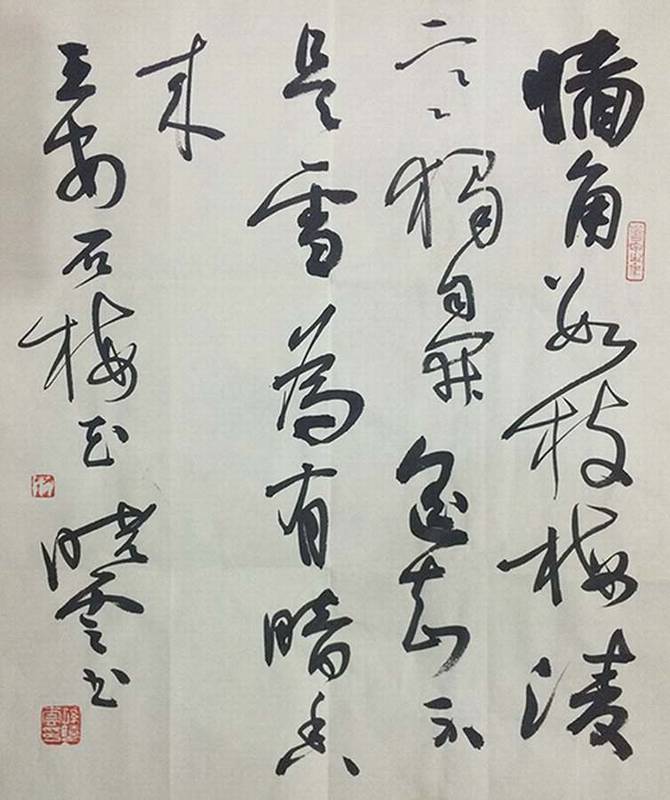 墙角数枝梅凌
寒獨自開遥知不
是雪為有暗香
来
王安石梅花 晓雲书